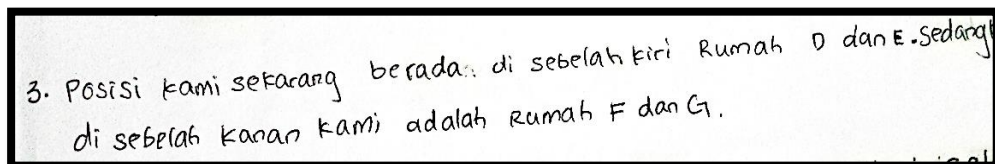 3. Posisi kami sekarang berada di sebelah kiri Rumah D dan E. Sedang
di sebelah kanan kami adalah Rumah F dan G.